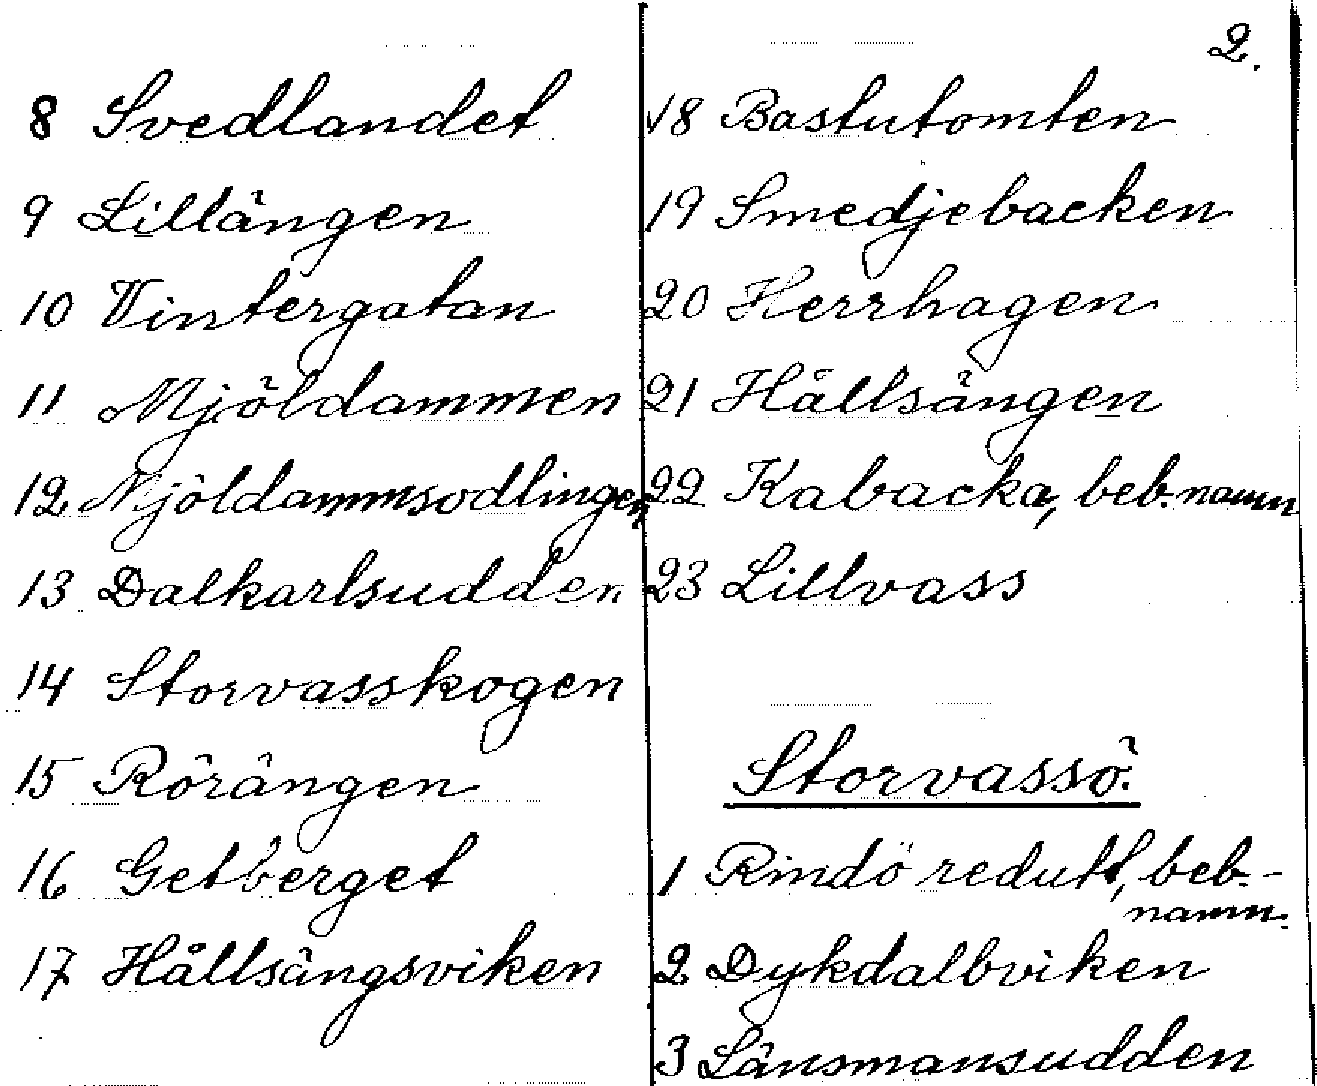 2.
8 Svedlandet
9 Lillängen
10 Vintergatan
11 Mjöldammen
12 Mjöldammsodlingen
13 Dalkarlsudden
14 Storvasskogen
15 Rörängen
16 Getberget
17 Hällsängsviken
18 Bastutomten
19 Smedjebacken
20 Herrhagen
21 Hällsängen
22 Kabacka, beb. namn
23 Lillvass
Storvassö.
1 Rindö redutt, beb.-
namn.
2 Dykdalbviken
3 Länsmansudden